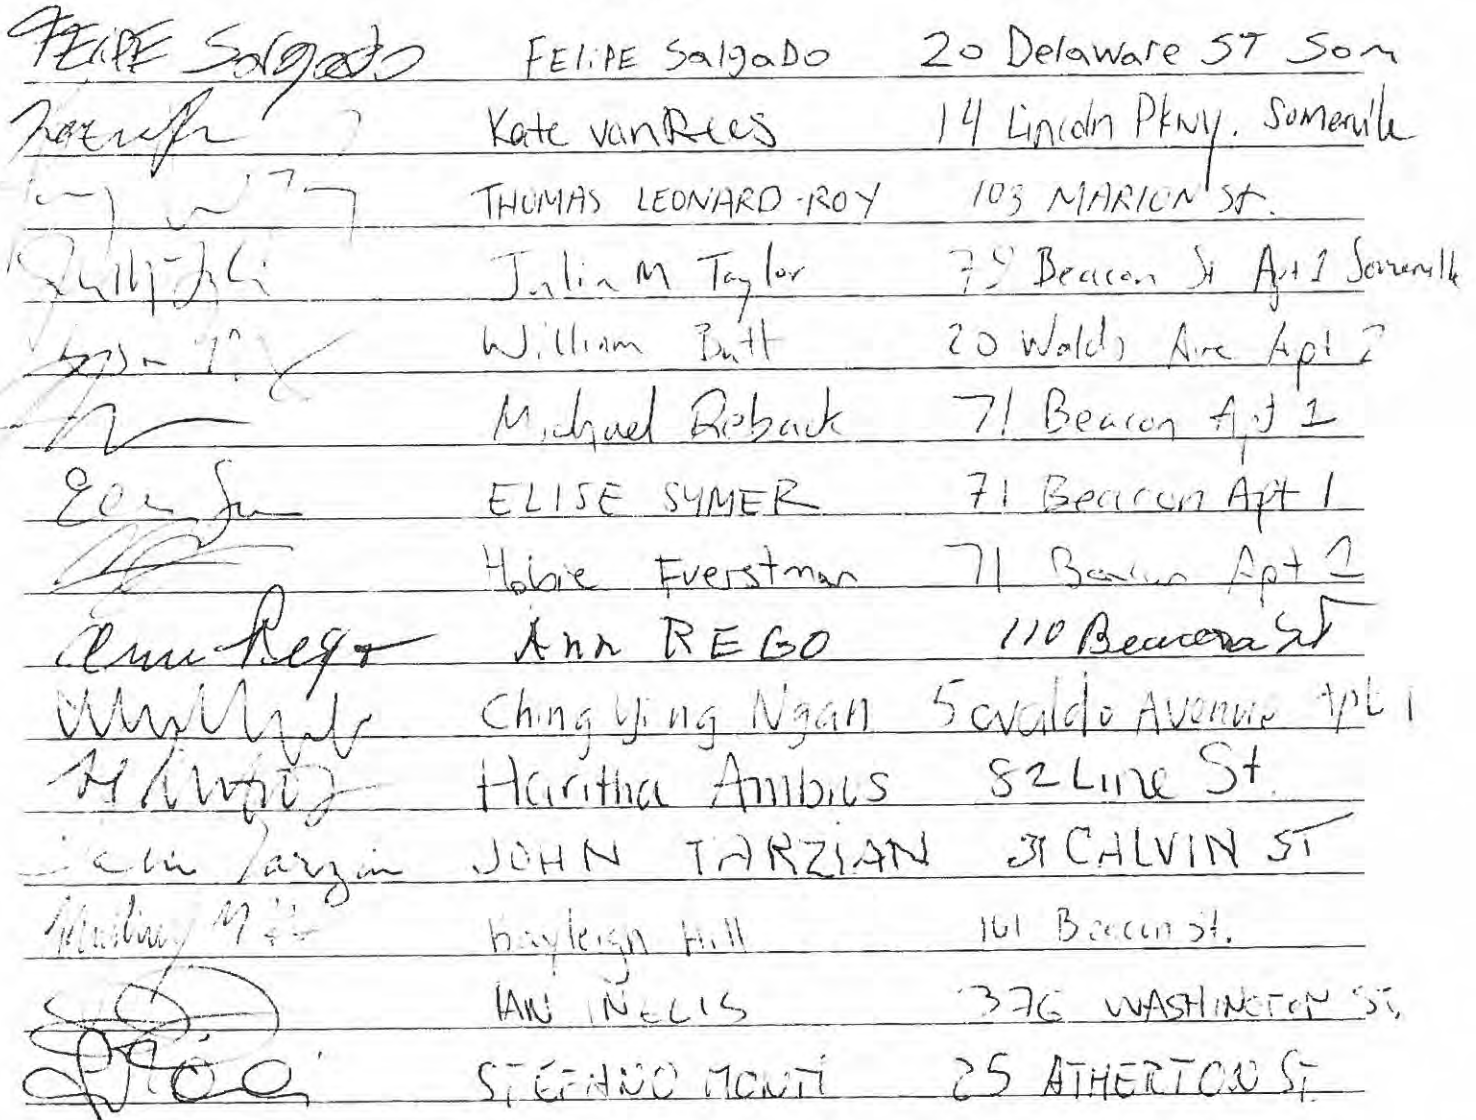 FELIPE Salgado FELIPE SalgaDo 20 Delaware ST Som
Kate vanRees 14 Lincoln Pkwy. Somerville
THOMAS LEONARD-ROY 103 MARION St.
Julia M Taylor 79 Beacon St Apt 1 Somerville
William Butt 20 Waldo Ave Apt 2
Michael Roback 71 Beacon Apt 1
ELISE SYMER 71 Beacon Apt 1
Hobie Everstman 71 Beacon Apt 1
Ann Rego Ann REGO 110 Beacon ST
Ching Ying Ngan 5 Avenue Apt 1
Haritha 82 Line St.
Tarzian JOHN TARZIAN 31 CALVIN ST
Kayleigh Hill 101 Beacon St.
IAN 376 WASHINGTON ST.
STEFANO MONTI 25 ATHERTON ST.